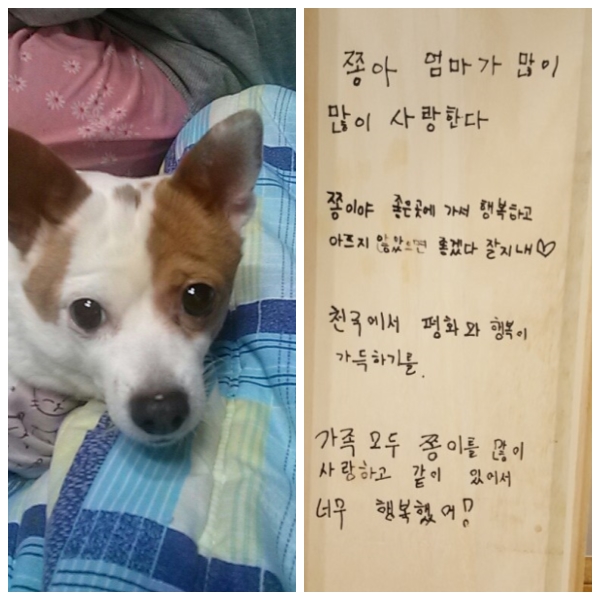 쫑아 엄마가 많이
많이 사랑한다
쫑이야 좋은곳에 가서 행복하고
아프지 않았으면 좋겠다 잘지내♡
천국에서 평화와 행복이
가득하기를.
가족 모두 쫑이를 많이
사랑하고 같이 있어서
너무 행복했어!